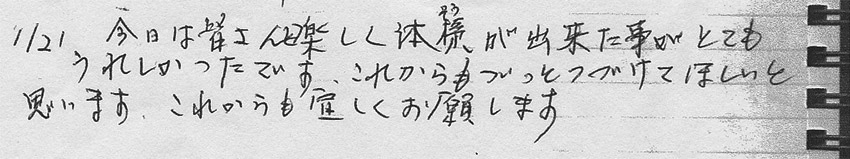 1/21 今日は皆さんと楽しく体操が出来た事がとても
うれしかったです、これからもづっとつづけてほしいと
思います、これからも宜しくお願します